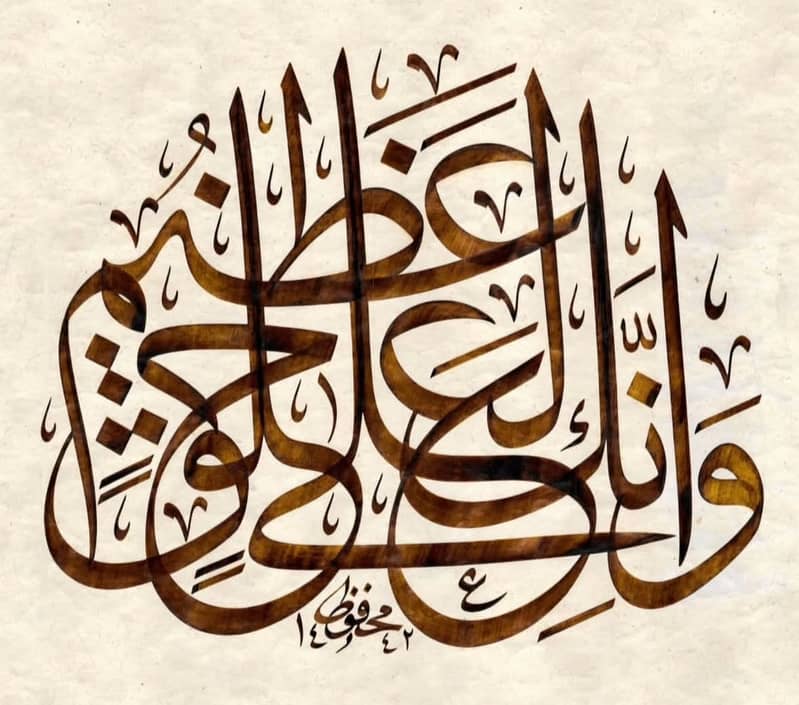 وَإِنَّكَ لَعَلَىٰ خُلُقٍ عَظِيمٍ
محفوظ
١٤٤٢